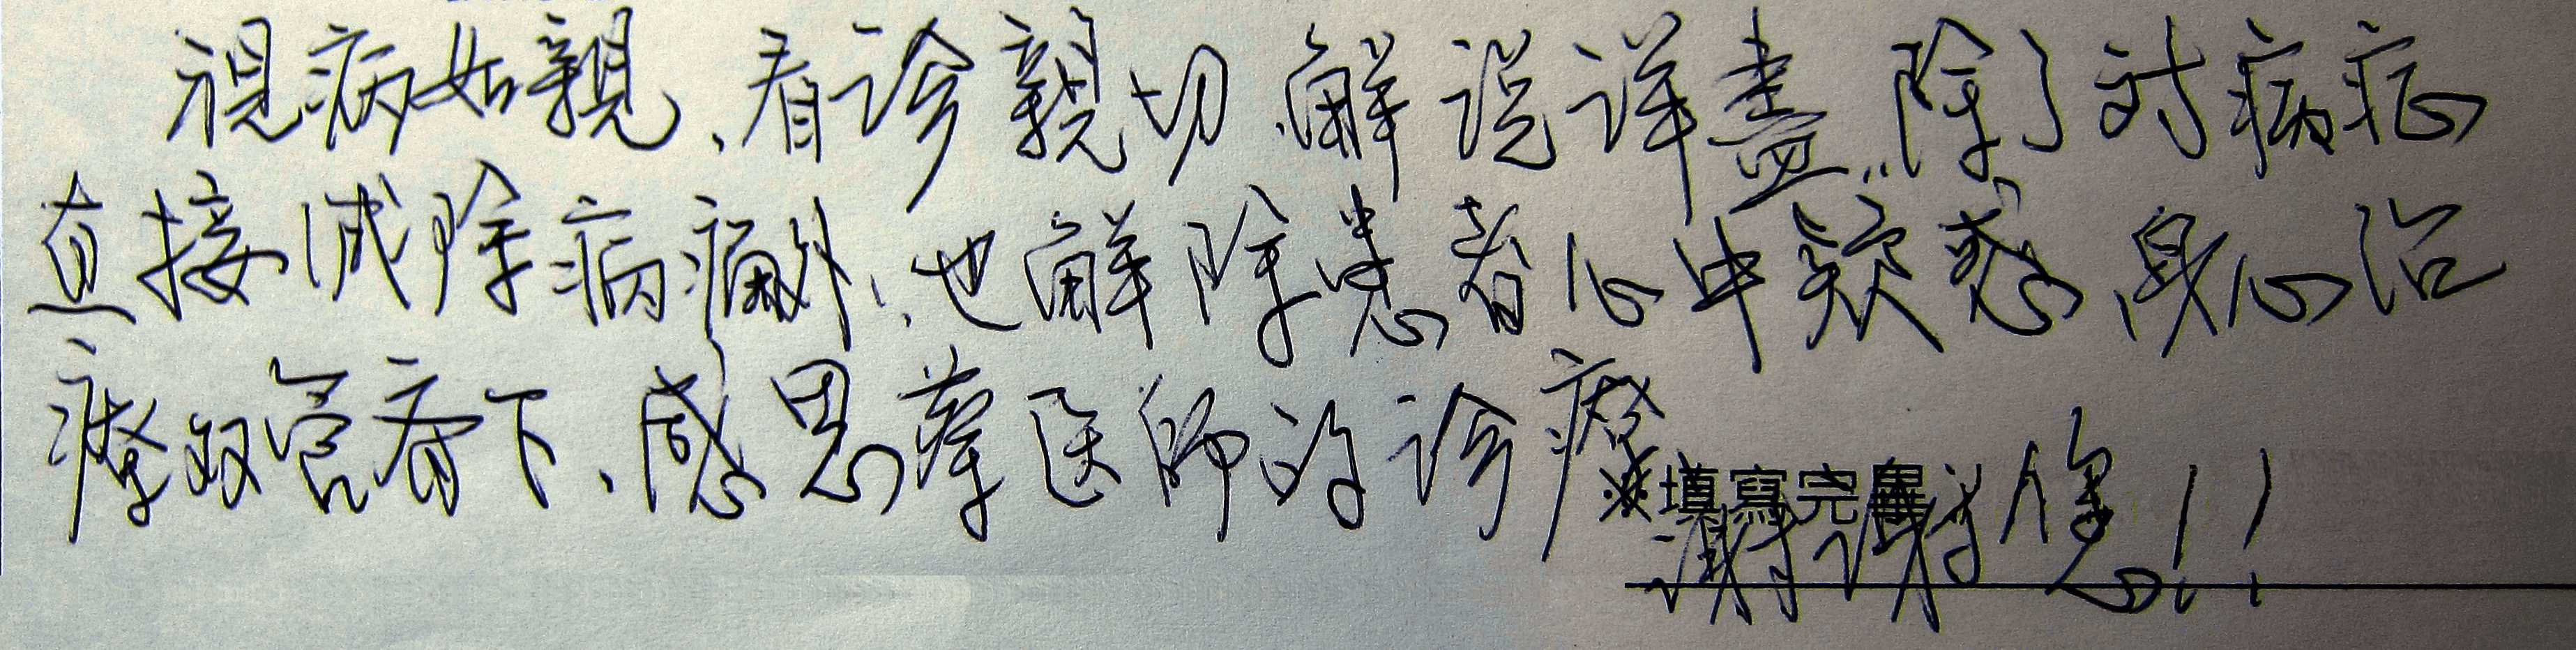 視病如親、看诊親切、解说详盡、除了对病症
直接减除病痛外、也解除患者心中疑惑、身心治
療双管齊下、感恩蔡医师的诊療
※填寫完畢
謝謝您!!